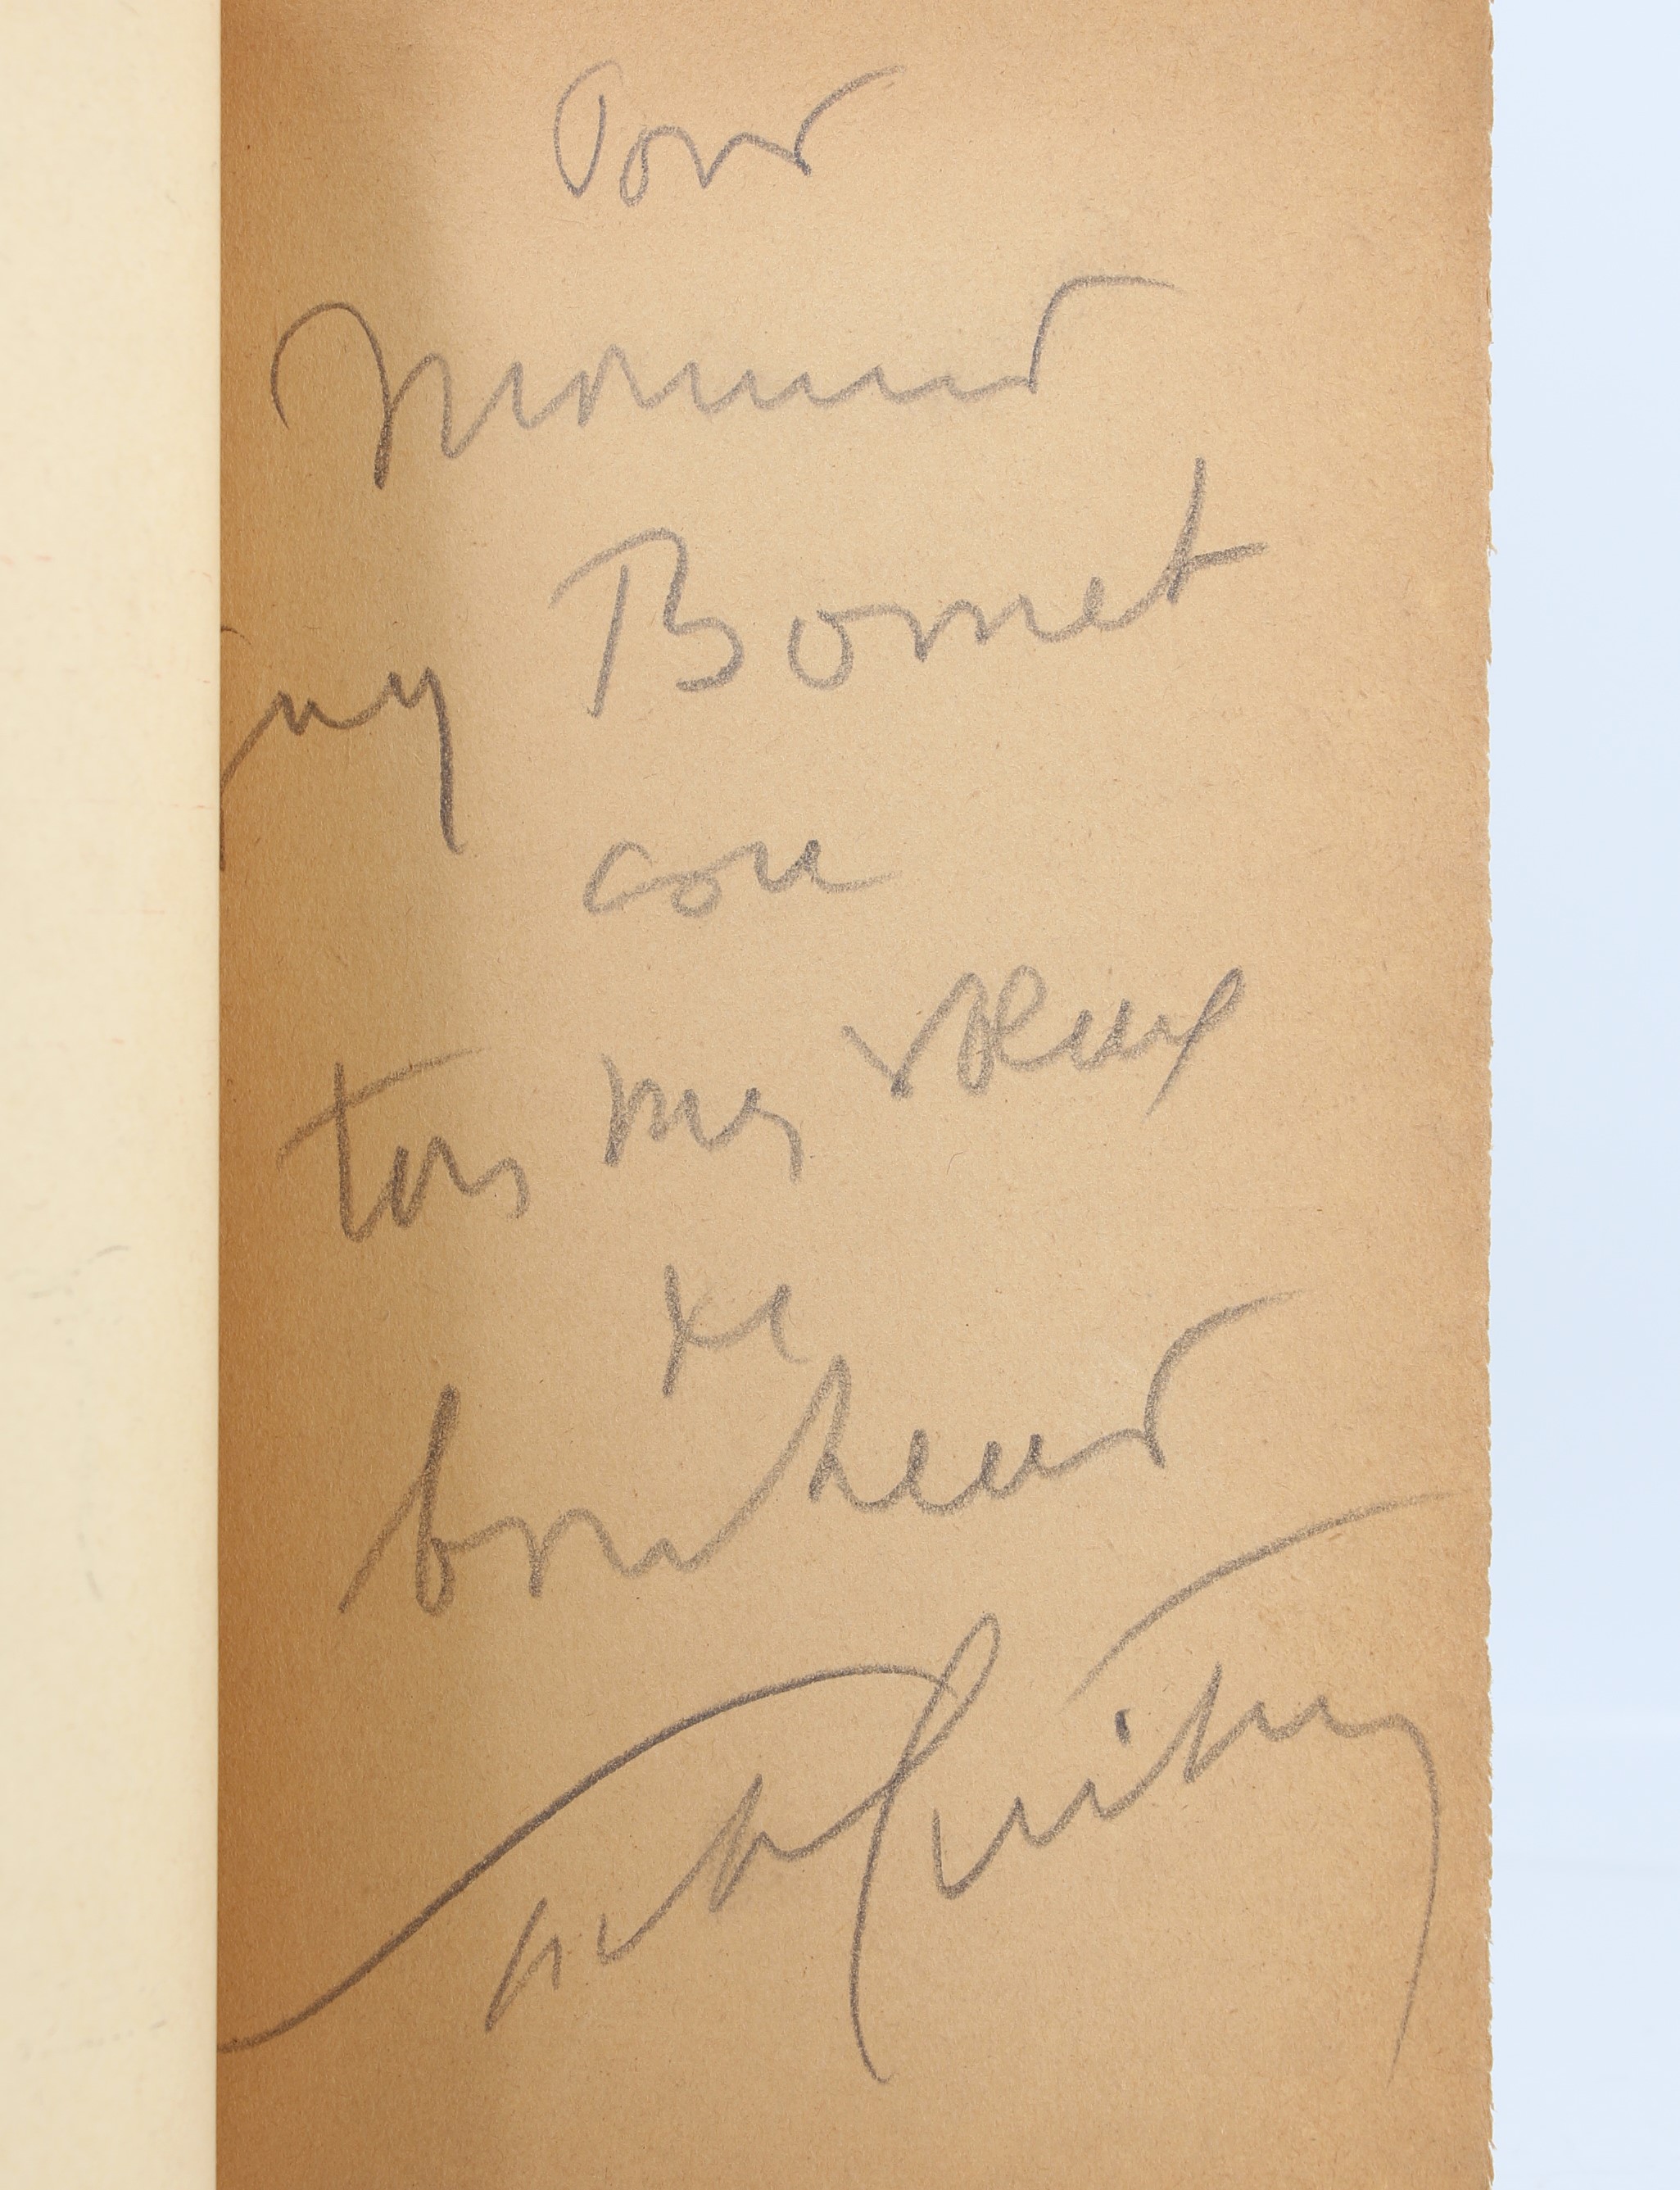 Pour
Monsieur
Guy Bornet
avec
tous mes vœux
de
bonheur